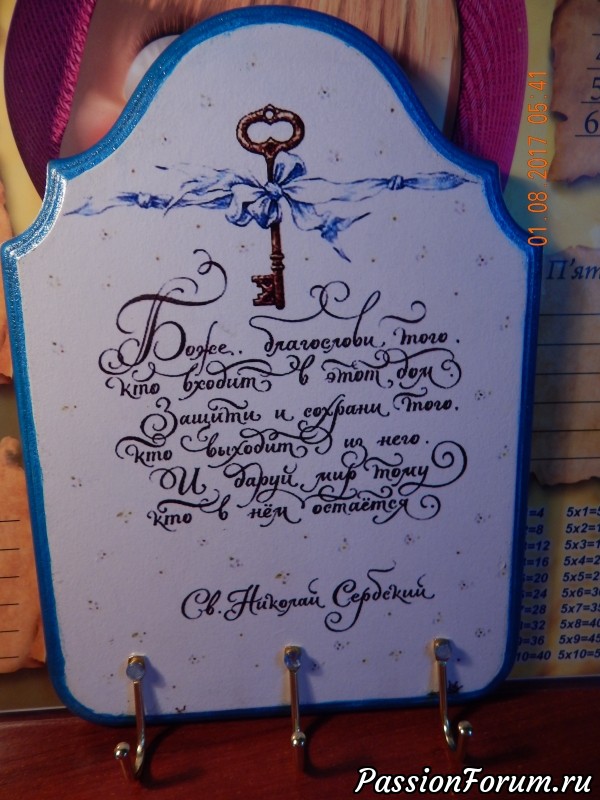 01.08.2017 05:41
6
П'ят
Боже.. благослови того.
кто входит в этот дом.
Защити и сохрани того.
кто выходит из него.
И даруй мир тому
кто в нём остаётся.
Св. Николай Сербский
=4 5x1=5
=8 5x2=
=12 5x3=
=16 5x4=
=20 5x5=2
=24 5x6=
=28 5x7=3
=32 5x8=40
=36 5x9=45
=40 5x10=5
PassionForum.ru